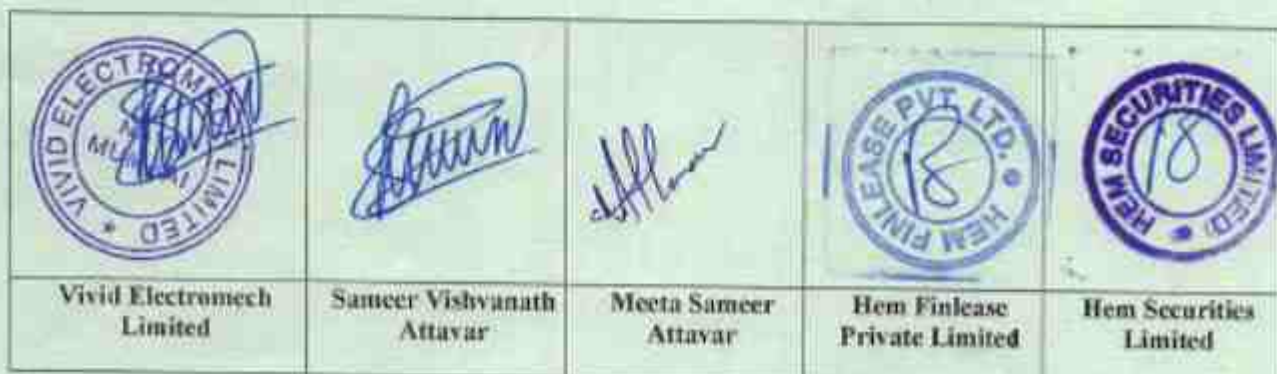 VIVID ELECTROM LIMITED *
HEM FINLEASE PVT. LTD.
HEM SECURITIES LIMITED
18
Vivid Electromech
Limited
Sameer Vishvanath
Attavar
Meeta Sameer
Attavar
Hem Finlease
Private Limited
Hem Securities
Limited